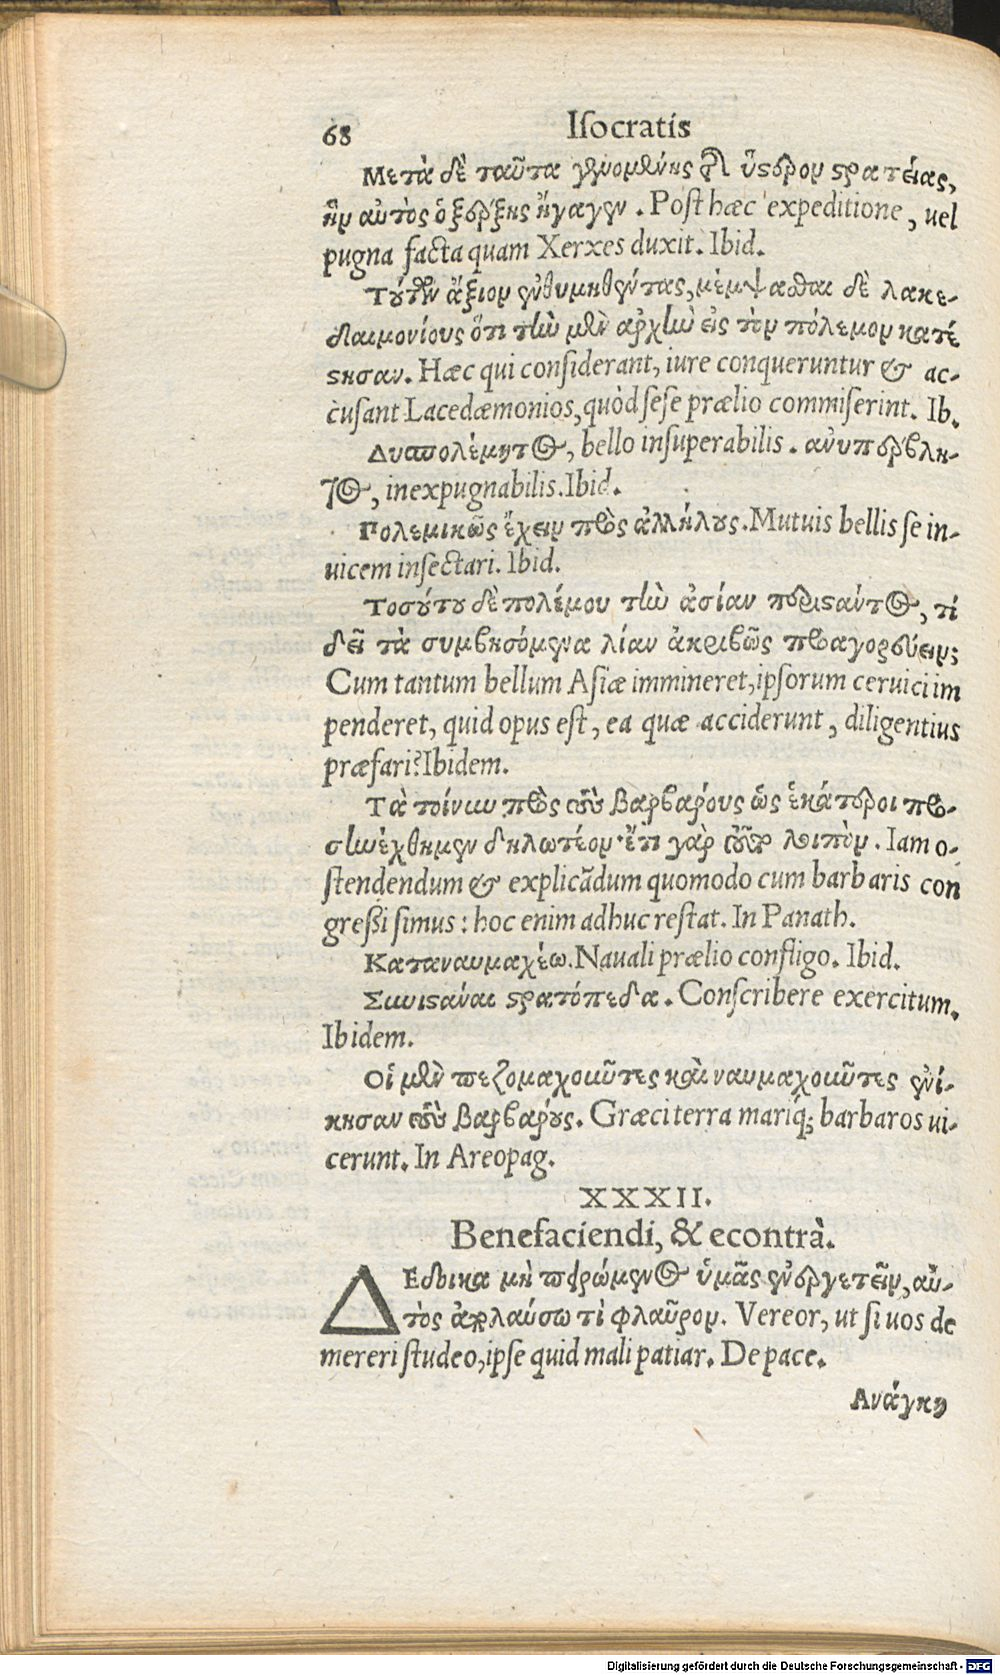 68 Isocratis
Μετὰ δὲ ταῦτα γενομένης τῆς ὕστερον στρατείας,
ἣν αὐτὸς ὁ ξέρξης ἤγαγεν. Post hæc expeditione, uel
pugna facta quam Xerxes duxit. Ibid.
Τούτων ἄξιον ἐνθυμηθέντας, μέμψασθαι δὲ λακε-
δαιμονίους ὅτι τὴν μὲν ἀρχὴν εἰς τὸν πόλεμον κατέ
στησαν. Hæc qui considerant, iure conqueruntur & ac-
cusant Lacedæmonios, quòd sese prælio commiserint. Ib.
Δυσπολέμητος, bello insuperabilis. ἀνυπέρβλη-
τος, inexpugnabilis. Ibid.
Πολεμικῶς ἔχειν πρὸς ἀλλήλους. Mutuis bellis se in-
uicem insectari. Ibid.
Τοσούτου δὲ πολέμου τὴν ἀσίαν περιστάντος, τί
δεῖ τὰ συμβησόμενα λίαν ἀκριβῶς προαγορεύειν;
Cum tantum bellum Asiæ immineret, ipsorum ceruici im
penderet, quid opus est, ea quæ acciderunt, diligentius
præfari? Ibidem.
Τὰ τοίνυν πρὸς τοὺς βαρβάρους ὡς ἑκάτεροι προ-
σηνέχθημεν δηλωτέον· ἔτι γὰρ τοῦτο λοιπὸν. Iam o-
stendendum & explicãdum quomodo cum barbaris con
gressi simus: hoc enim adhuc restat. In Panath.
Καταναυμαχέω. Nauali prælio confligo. Ibid.
Συνιστάναι στρατόπεδα. Conscribere exercitum.
Ibidem.
Οἱ μὲν πεζομαχοῦντες καὶ ναυμαχοῦντες ἐνί-
κησαν τοὺς βαρβάρους. Græci terra mariq́; barbaros ui-
cerunt. In Areopag.
XXXII.
Benefaciendi, & econtrà.
ΔΕδοικα μὴ πειρώμενος ὑμᾶς εὐεργετεῖν, αὐ-
τὸς ἀπολαύσω τὶ φλαῦρον. Vereor, ut si uos de
mereri studeo, ipse quid mali patiar. De pace.
Ανάγκη
Digitalisierung gefördert durch die Deutsche Forschungsgemeinschaft - DFG